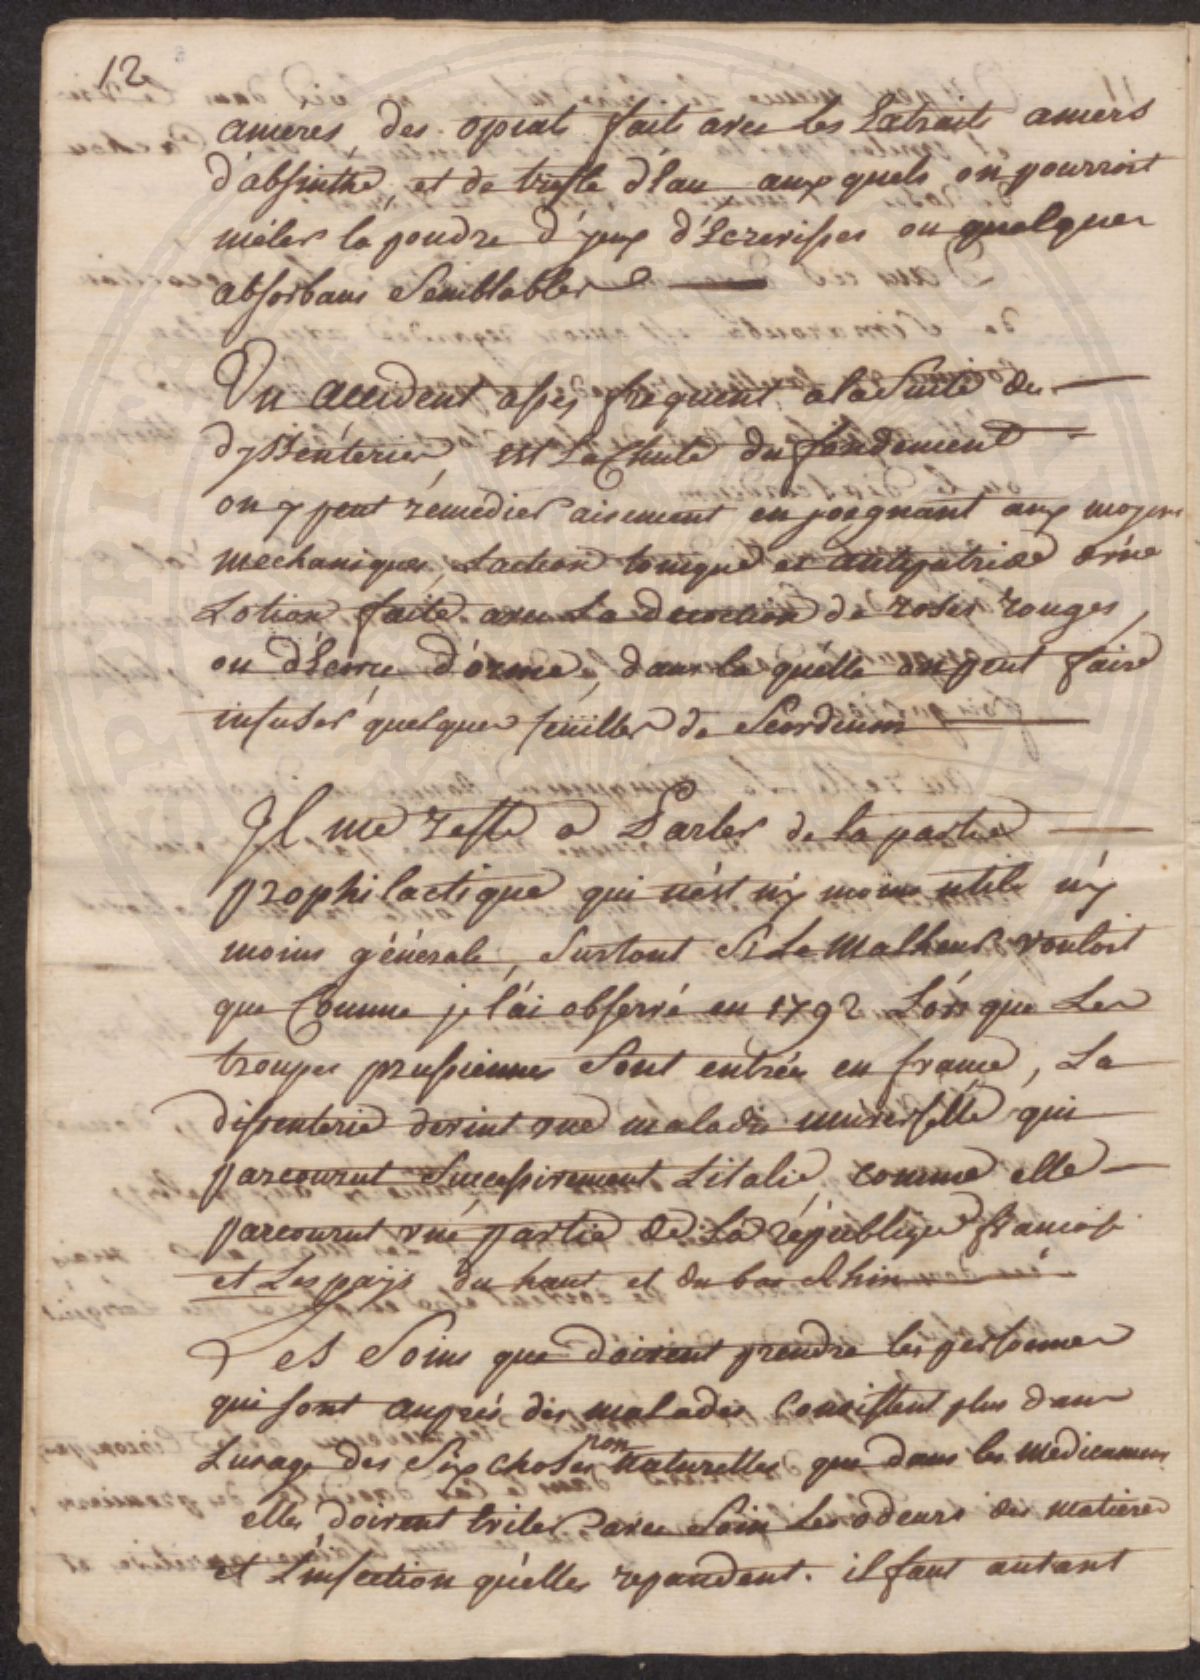 12
ameres, des opiats faits avec les Extraits amers
d'absinthe, et de trefle d'Eau aux quels on pourroit
mêler la poudre d'yeux d'Ecrevisses ou quelques
absorbans Semblables
Un accident assés frequent a la Suite des
dyssenteries, est La Chute du fondement
on y peut rémedier aisement en joignant aux moyens
mechaniques, L'action tonique et antiputride d'une
Lotion faite avec La decoction de roses rouges,
ou d'Ecorce d'orme, dans la quelle on peut faire
infuser quelques feüilles de Scordium
Il me reste a Parler de la partie
prophilactique qui n'est n'y moins utile n'y
moins générale, Surtout Si Le Malheur vouloit
que Comme je l'ai observé en 1792 Lors que Les
troupes prussiennes Sont entrées en france, La
dissenterie devint une maladie universelle qui
parcourut Successivement L'italie, comme elle
parcourut une partie de La république francois
et Les pays du haut et du bas Rhin
Les Soins que doivent prendre les personnes
qui sont auprés des malades Consistent plus dans
L'usage des Six choses non naturelles que dans les medicamens
elles doivent eviter avec Soin Les odeurs des matieres
et L'infection qu'elles repandent. il faut autant